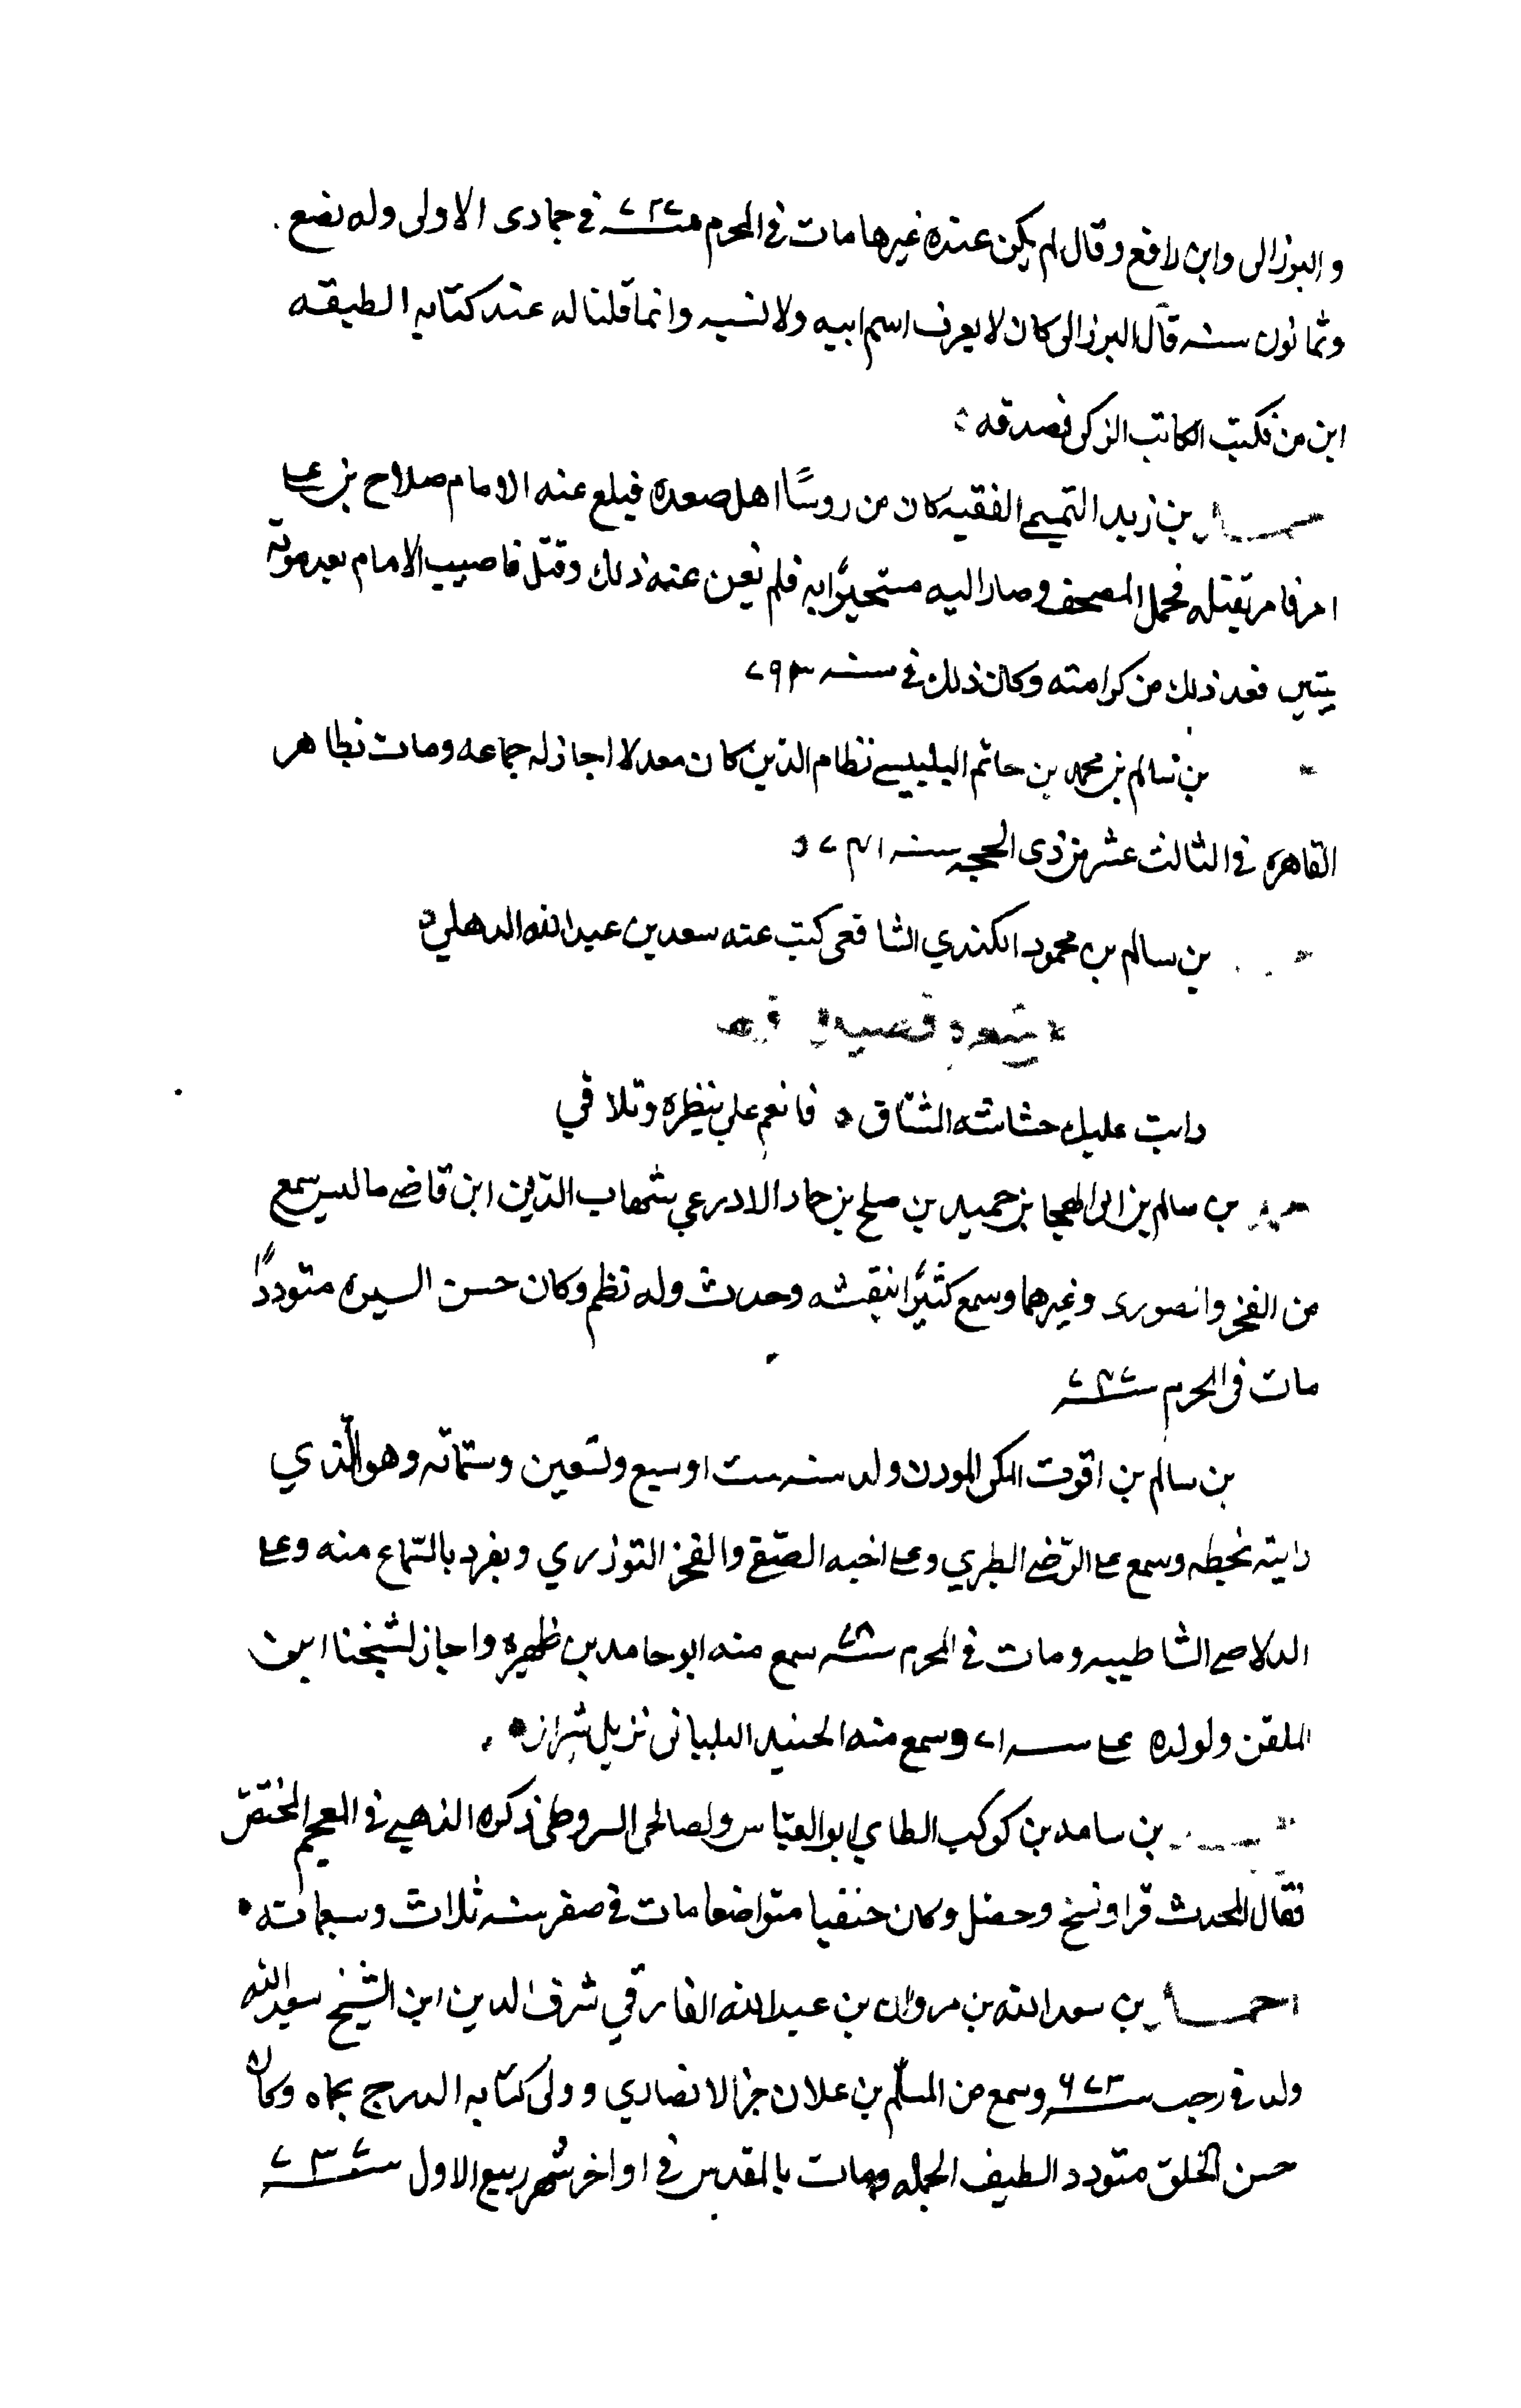 والبرزالى وابن رافع وقال لم يكن عنده غيرها مات فى المحرم سنة ٧٢٧ في جمادى الاولى وله بضع
وثمانون سنه قال البرزالى كان لا يعرف اسم ابيه ولا نسبه وانما قلنا له عند كتابه الطبقه
ابن من فكتب الكاتب الزكى فصدقه
بن زيد التميمي الفقيه كان من روسًا اهل صعده فبلغ عنه الامام صلاح بن على
امر فامر بقتله فحمل المصحف وصار اليه مستجيرًا به فلم يغن عنه ذلك وقتل فاصيب الامام بعد موته
فعد ذلك من كرامته وكان ذلك في سنه ٧٩٣
بن سالم بن محمد بن حاتم البلبيسي نظام الدين كان معدلا اجاز له جماعه ومات بظاهر
القاهره في الثالث عشر من ذى الحجه سنه ٧٤١
بن سالم بن محمود الكندي الشافعى كتب عنه سعد بن عبد الله الدهلي
فانعم علي بنظره وتلاقي
بن سالم بن ابى الهيجا بن حميد بن صلح بن حماد الادرعي شهاب الدين ابن قاضي سمع
من الفخر وغيرهما وسمع كثيرًا بنفسه وحدث وله نظم وكان حسن السيره متوددًا
مات فى المحرم
بن سالم بن اقوت المكى المودن ولد سنه ست او سبع وتسعين وستمائه وهو الذي
رايته بخطه وسمع على الرضي الطبري وعلى اخيه الصفي والفخر التوزري وبفرد بالسماع منه وعلى
الدلاصي الشاطبيه ومات في المحرم سمع منه ابو حامد بن ظهيره واجاز لشيخنا ابن
الملقن ولولده وسمع منه الجنيد البليانى نزيل شيراز
بن سامد بن كوكب الطاي ابو العباس ذكره الذهبي في المعجم المختص
فقال المحدث قرا ونسخ وحصل وكان حنفيا متواضعا مات في صفر سنه ثلاث وسبعمائه
احمد بن سعد الله بن مروان بن عبد الله الفارقي شرف الدين ابن الشيخ سعد الله
ولد في رجب سنة ٦٧٣ وسمع من المسلم بن علان جز الانصاري وولى كتابه الدرج بحماه وكان
حسن الخلق متودد الطيف الجمله ومات بالمقدس في اواخر شهر ربيع الاول سنة ٧٣٧